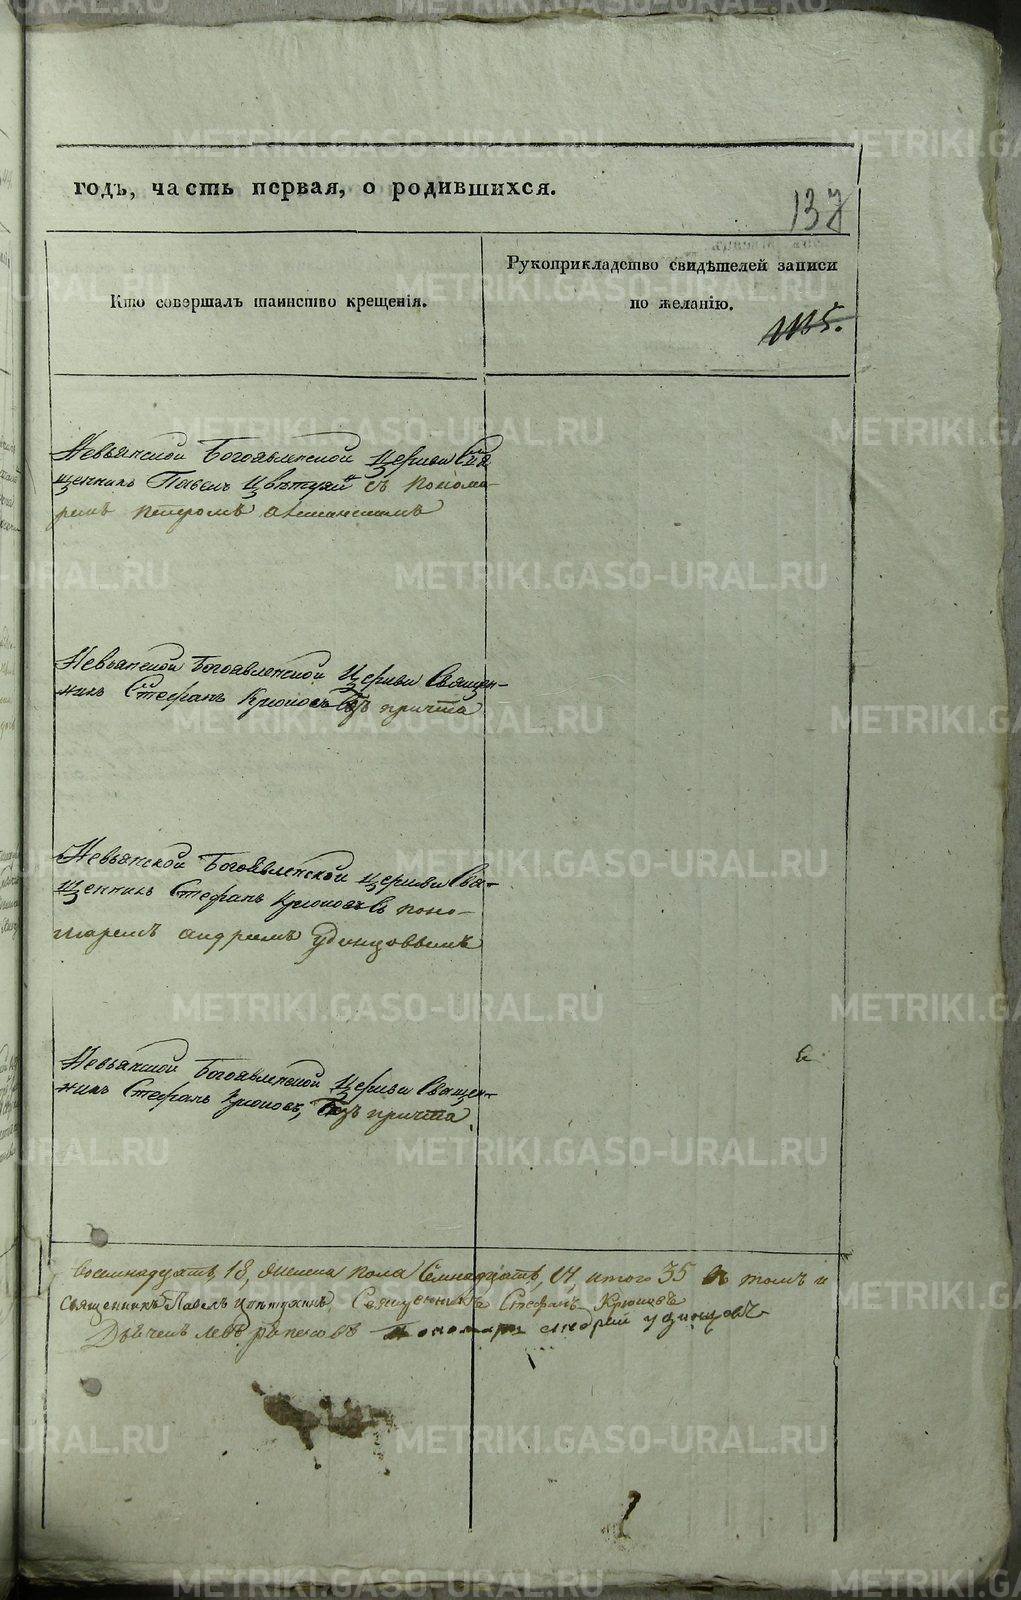 годъ, часть первая, о родившихся.
137
Кто совершалъ таинство крещенія.
Рукоприкладство свидѣтелей записи
по желанію.
1115.
Невьянской Богоявленской Церкви Свя
щенникъ Павелъ Цвѣтухинъ съ поном-
ремъ петромъ
Невьянской Богоявленской Церкви Священ-
никъ Стефанъ Крюковъ безъ причта
Невьянской Богоявленской Церкви Свя-
щенникъ Стефанъ Крюковъ съ поно-
маремъ андреемъ удинцовымъ
Невьянской Богоявленской Церкви Священ-
никъ Стефанъ Крюковъ, безъ причта.
восемнадцать, 18, женска пола семнадцать, 17, итого 35 въ томъ и
священникъ Павелъ Цвѣтухинъ, Священникъ Стефанъ Крюковъ
Дьячекъ левъ Пономарь андрей удинцовъ
METRIKI.GASO-URAL.RU